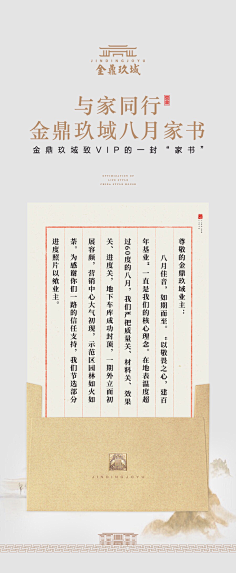 JINDINGJOYU
金鼎玖域
与家同行
金鼎玖域八月家书
金鼎玖域致VIP的一封“家书”
尊敬的金鼎玖域业主：
八月佳音，如期而至。“以敬畏之心，建百
年基业”一直是我们的核心理念。在地表温度超
过60度的八月，我们严把质量关、材料关、效果
关、进度关，地下车库成功封顶，一期外立面初
展容颜，营销中心大气初现，示范区园林如火如
荼。为感谢你们一路的信任支持，我们节选部分
进度照片以飨业主。
JINDINGJOYU